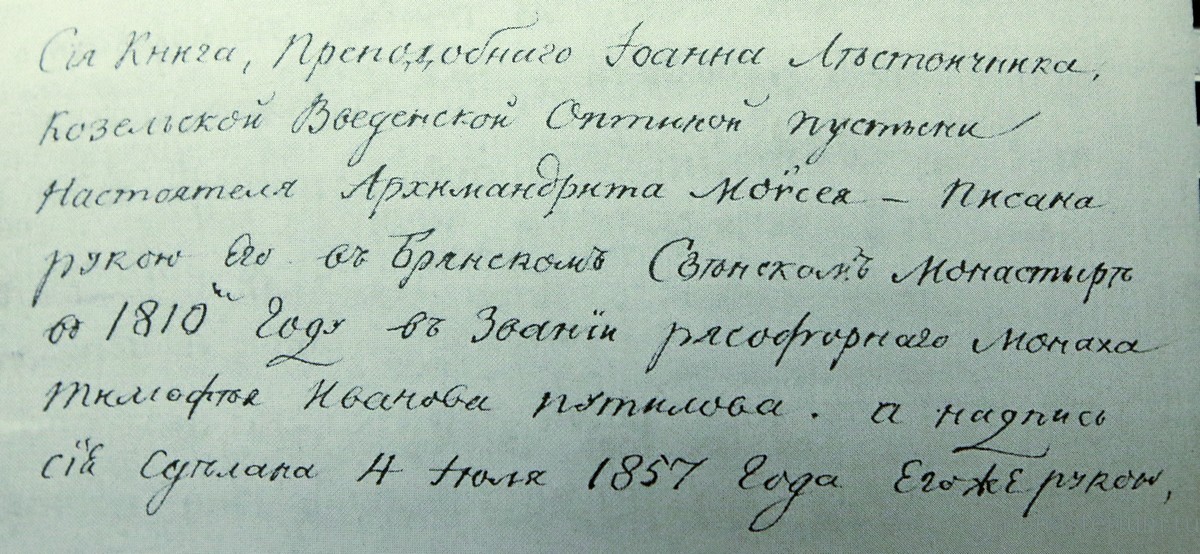 Сія Книга, Преподобнаго Іоанна Лѣствичника,
Козельской Введенской Оптиной пустыни
Настоятеля Архимандрита Моѵсея – писана
рукою Его въ Брянскомъ Свѣнскомъ Монастырѣ
въ 1810м Году въ Званіи рясофорнаго Монаха
Тимофѣя Иванова путилова. а надпись
сія сдѣлана 4 Июля 1857 Года Егоже рукою,